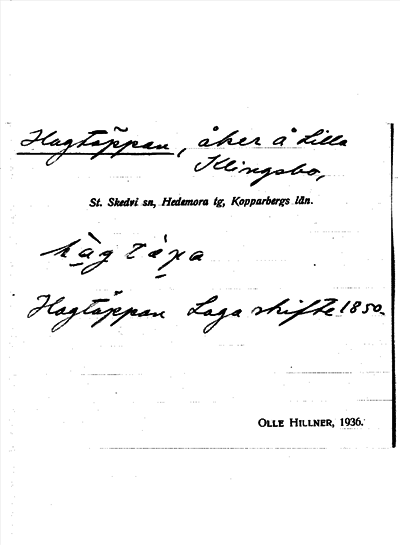 Hagtäppan, åker å Lilla
Klingsbo,
St. Skedvi sn, Hedemora tg, Kopparbergs län.
Hagtäppan Laga skifte 1850.
OLLE HILLNER, 1936.